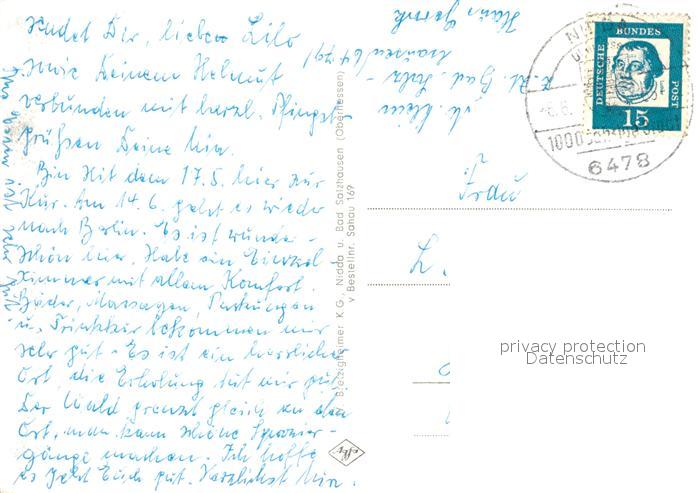 sendet Dir, liebe Lilo
sowie Deinem Helmut
verbunden mit herzl. Pfingst-
grüßen Deine Mia.
Bin seit dem 17.5. hier zur
Kur. Am 14.6. geht es wieder
nach Berlin. Es ist wunder-
schön hier. Habe ein Einzel-
zimmer mit allem Komfort.
Bäder, Massagen, Packungen
u. Trinkkur bekommen mir
sehr gut. Es ist ein herrlicher
Ort, die Erholung tut mir gut.
Der Wald grenzt gleich an den
Ort, man kann schöne Spazier-
gänge machen. Ich hoffe
es geht Euch gut. Herzlichst Mia.
Bretzigheimer K.G., Nidda u. Bad Salzhausen (Oberhessen)
v Bestellnr. Sahau 169
z. Zt. Bad Salz-
hausen
Frau
L.
NIDDA
6478
DEUTSCHE BUNDESPOST
15
privacy protection
Datenschutz